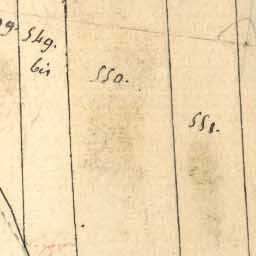 549.
bis
550.
551.